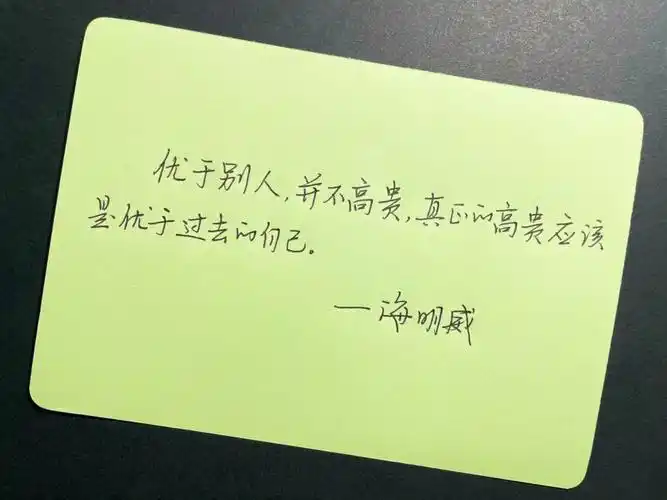 优于别人,并不高贵,真正的高贵应该
是优于过去的自己。
—海明威